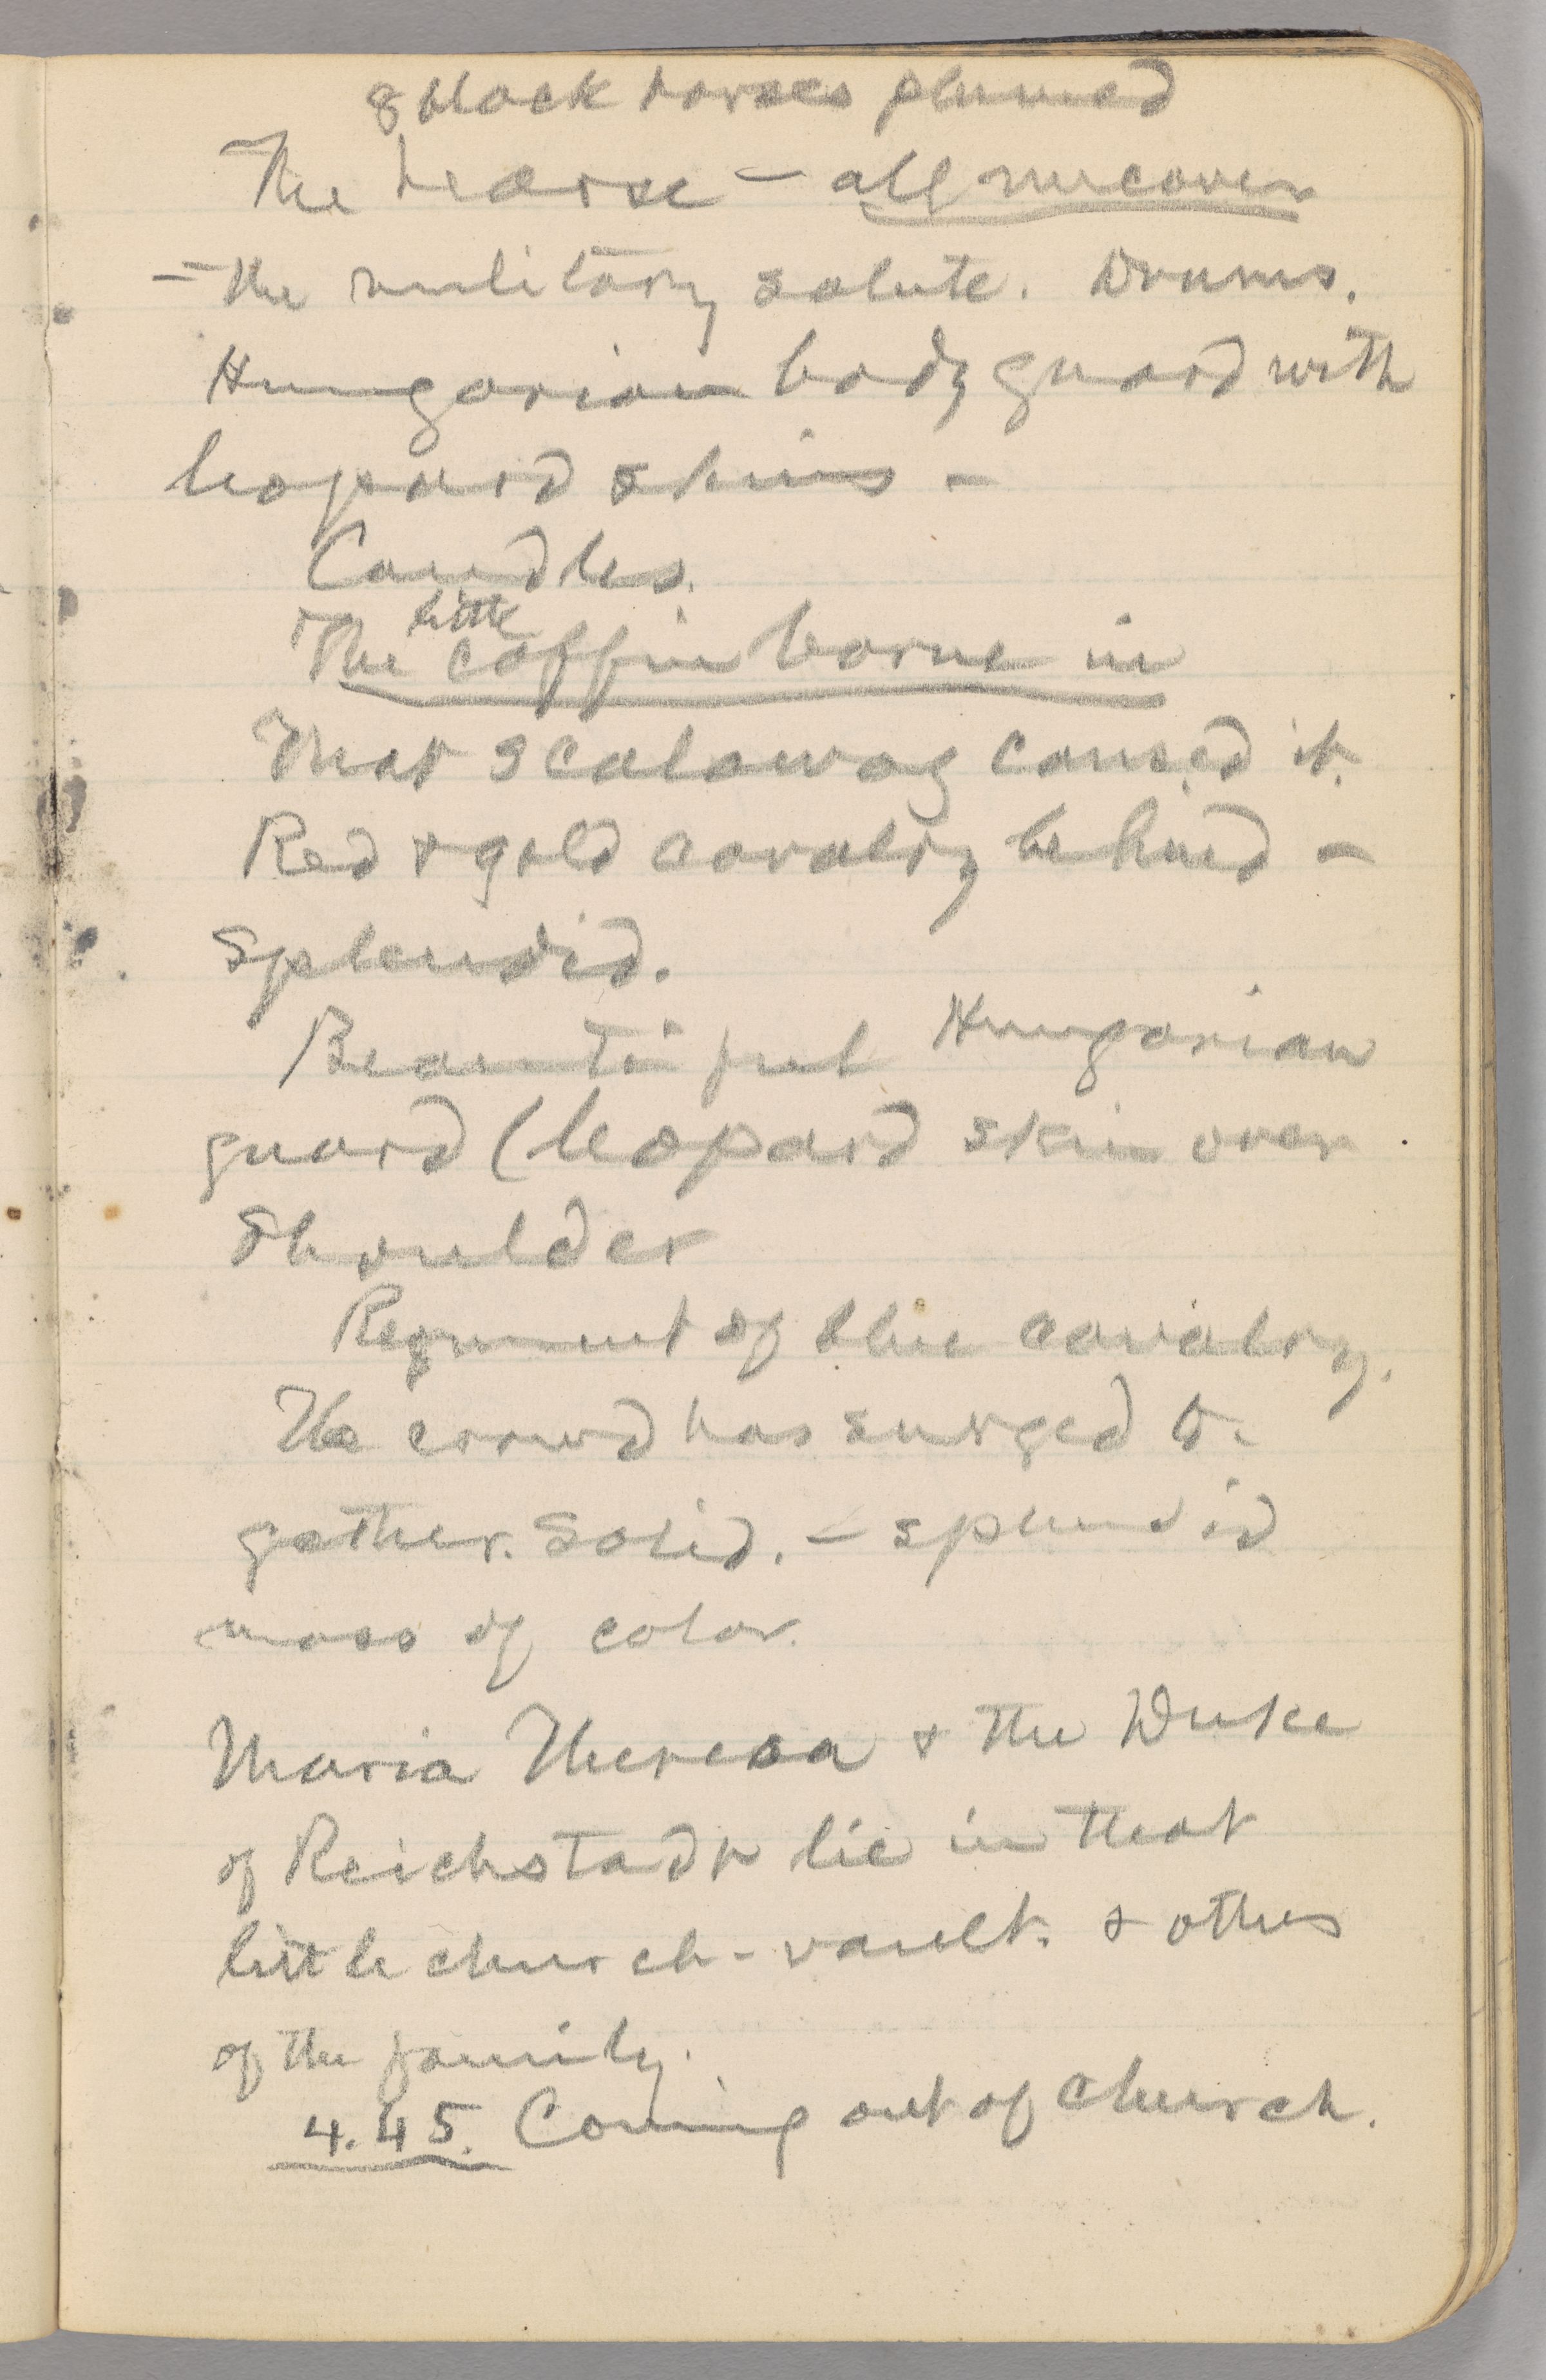 8 black horses plumed
The hearse — all uncover
— the military salute. Drums.
Hungarian body guard with
leopard skins —
Candles.
The little coffin borne in
That scalawag caused it.
Red & gold cavalry behind —
splendid.
Beautiful Hungarian
guard (leopard skin over
shoulder
Regiment of blue cavalry.
The crowd has surged to-
gether. Solid. — splendid
mass of color.
Maria Theresa & the Duke
of Reichstadt lie in that
little church-vault. & others
of the family.
4.45. Coming out of church.